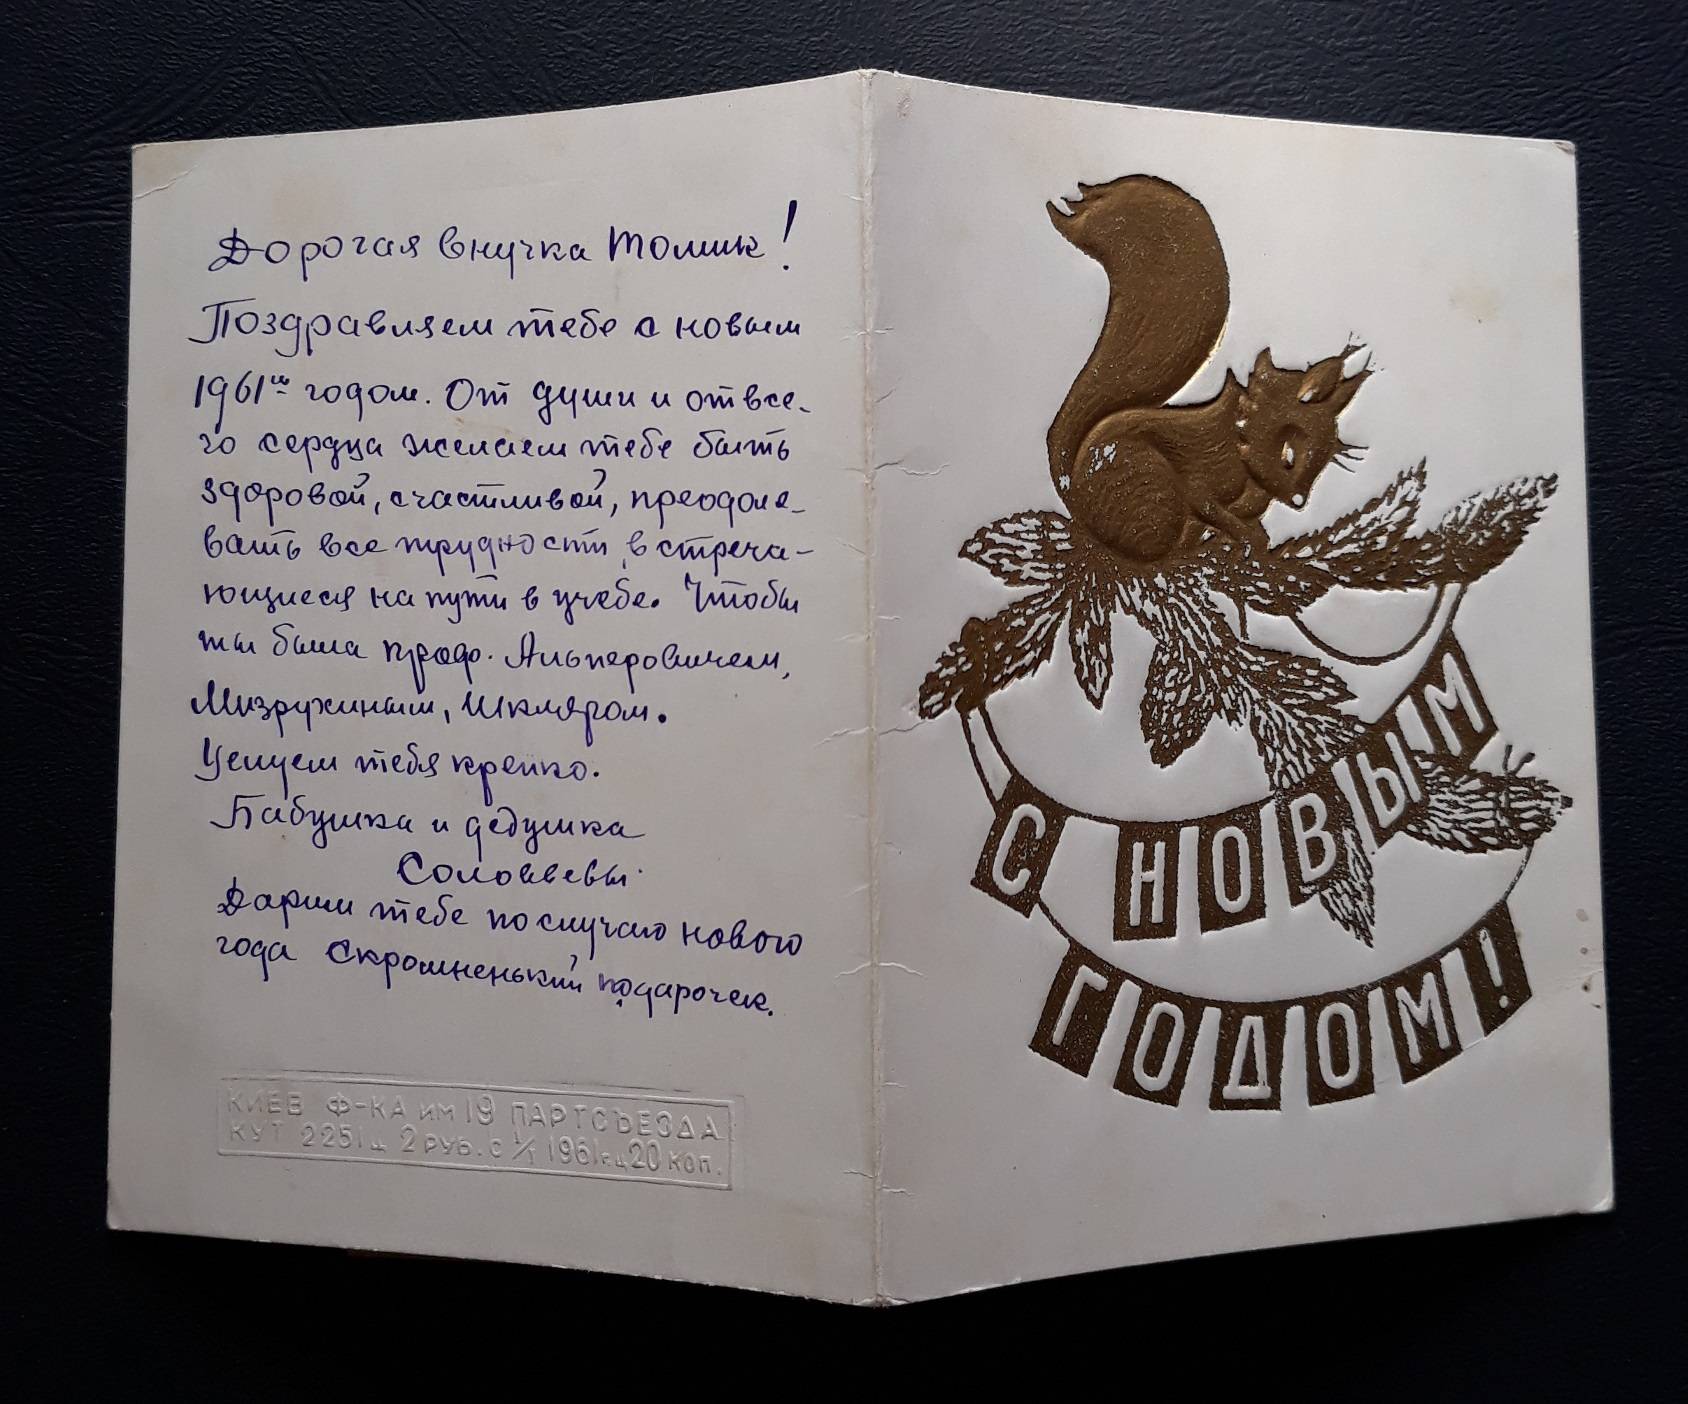 Дорогая внучка Томик!
Поздравляем тебе с новым
1961ым годом. От души и от все-
го сердца желаем тебе быть
здоровой, счастливой, преодоле-
вать все трудности, встреча-
ющиеся на пути в учебе. Чтобы
ты была проф. Альперовичем,
Мизружиным, Шкляром.
Целуем тебя крепко.
Бабушка и дедушка
Соловьевы.
Дарим тебе по случаю нового
года скромненький подарочек.
КИЕВ Ф-КА им 19 ПАРТСЪЕЗДА
КУТ 2251 ц 2 РУБ. с 1/I 1961 г. ц 20 коп.
С НОВЫМ
ГОДОМ!